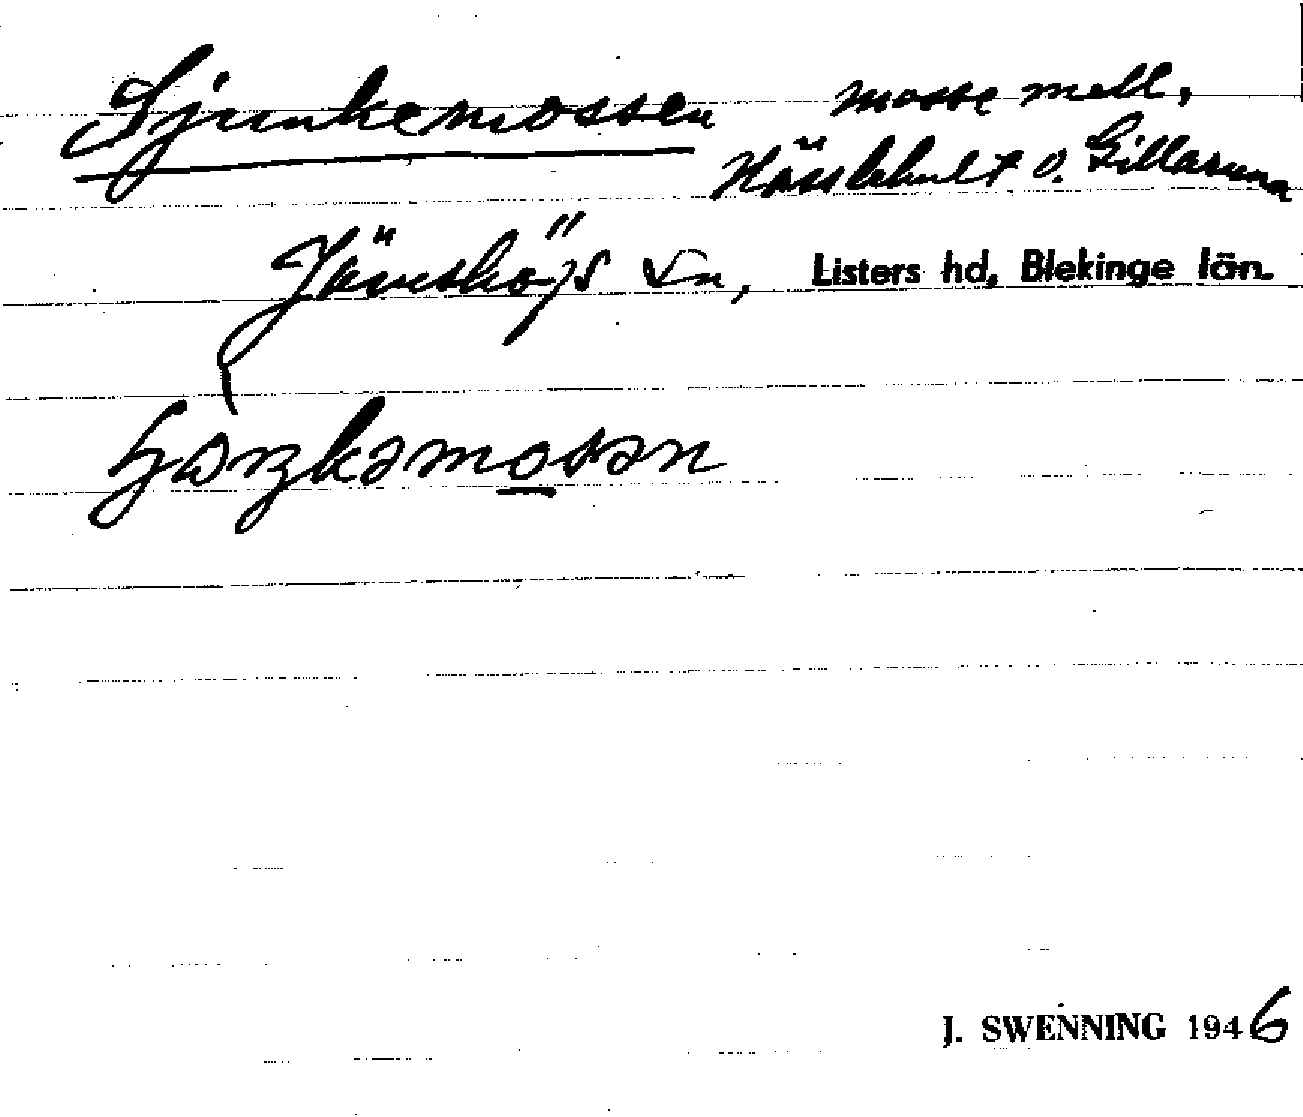 Sjunkemossen mosse mell.
Hässlehult o. Gillaruna
Jämshögs sn, Listers hd, Blekinge län.
J. SWENNING 1946